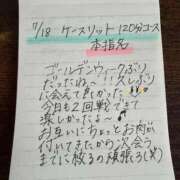 7/18 ケースリット 120分コース
本指名
ゴールデンウィークぶり
だったね〜!!久しぶり
に会えて良かった
今日も2回戦できて
楽しかったよ〜♪
お互いにちょっとお肉が
付いてきたから次会う
までに絞るの頑張ろ(笑)